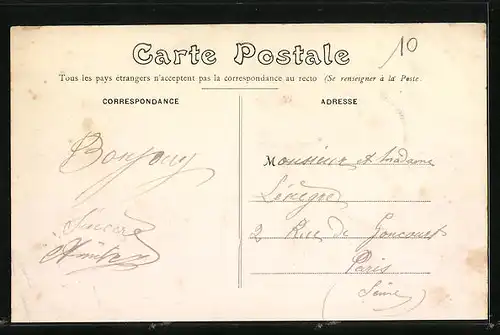 10
Carte Postale
Tous les pays étrangers n'acceptent pas la correspondance au recto (Se renseigner à la Poste.
CORRESPONDANCE
ADRESSE
Bonjour
Monsieur et Madame
Sincère
2 Rue de Goncourt
Paris
(Seine)